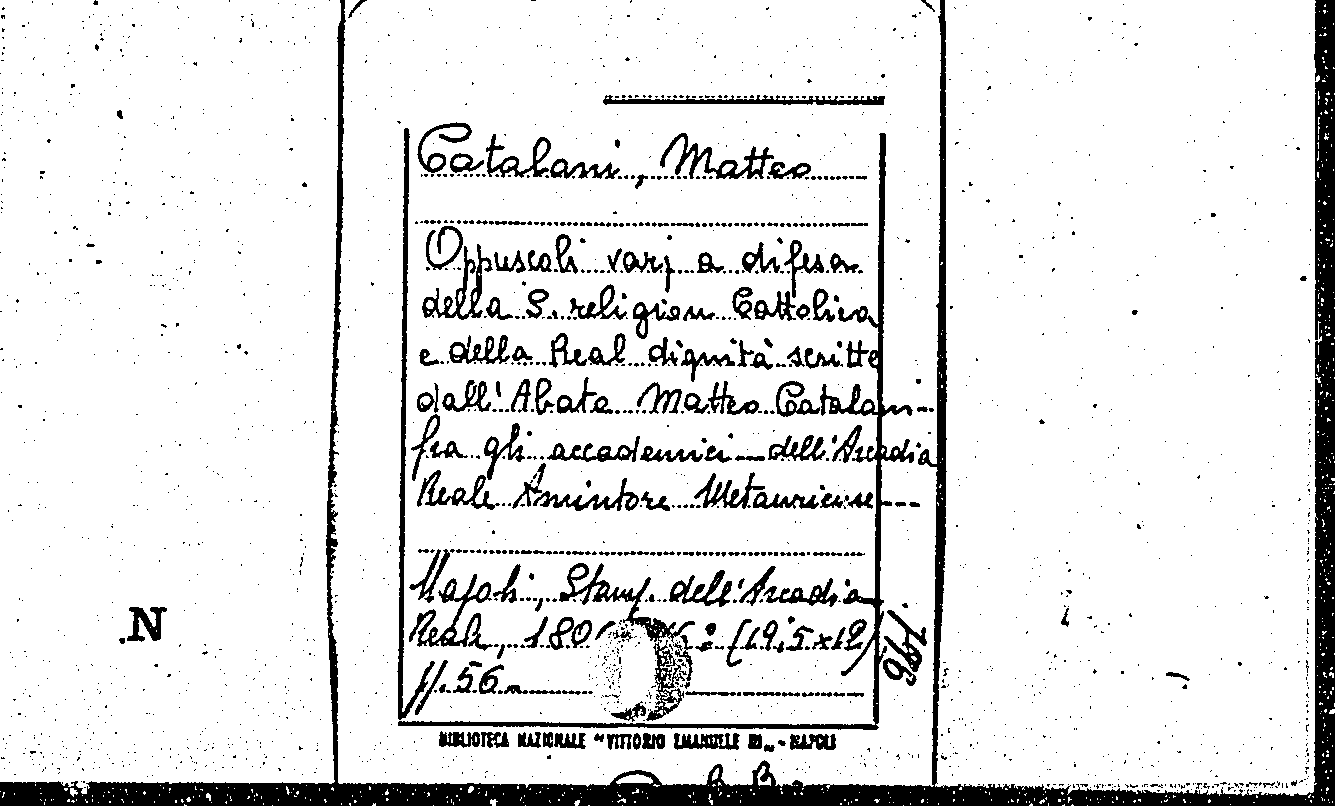 Catalani, Matteo
Oppuscoli varj a difesa
della S. religion Cattolica
e della Real dignità scritte
dall'Abate Matteo Catalani--
fra gli accademici--dell'Arcadia
Reale Amintore Metauriense---
Napoli, Stamp. dell'Arcadia
Reale, 180 (19,5x12)
pp. 56.
.N
BIBLIOTECA NAZIONALE "VITTORIO EMANUELE III" - NAPOLI
B.